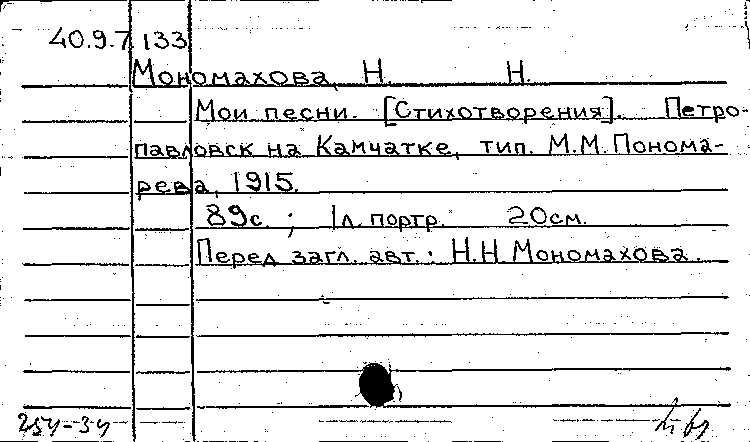 40.9.7.133
Мономахова, Н. Н.
Мои песни. [Стихотворения]. Петро-
павловск на Камчатке, тип. М.М.Понома-
рева, 1915.
89с. ; 1л. портр. 20см.
Перед загл. авт.: Н.Н Мономахова.
254-34